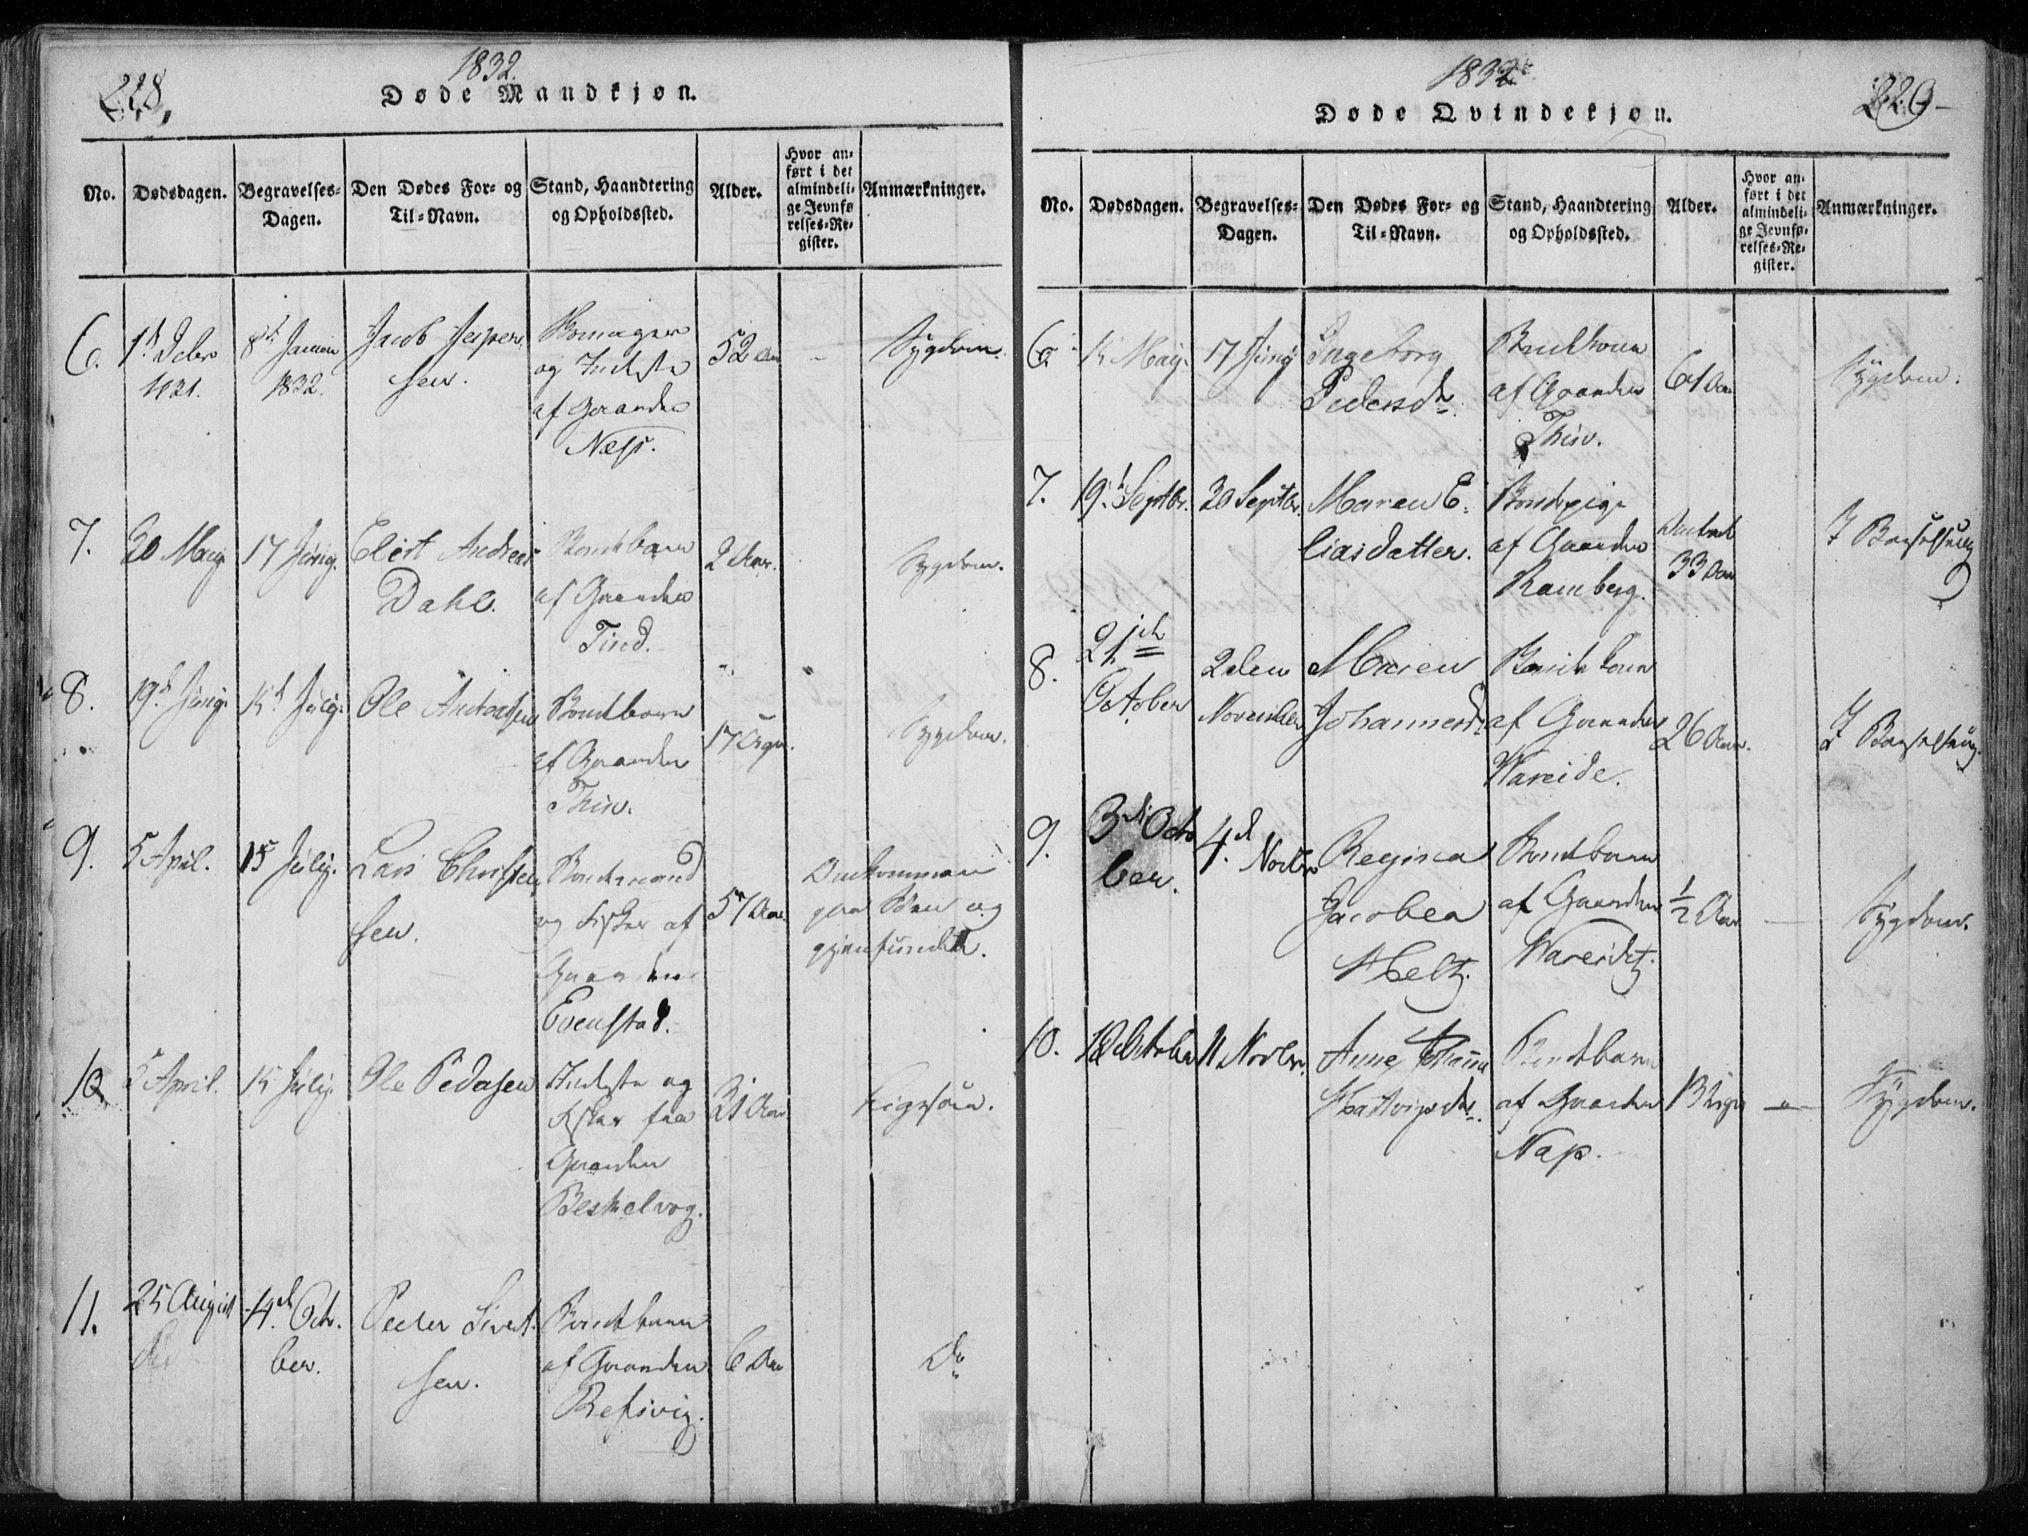 228.
1832.
Døde Mandkjøn.
No.
Dødsdagen.
Begravelses-
Dagen.
Den Dødes For- og
Til-Navn.
Stand, Haandtering
og Opholdssted.
Alder.
Hvor an-
ført i det
almindeli-
ge Jevnfø
relses-Re-
gister.
Anmærkninger.
6.
8d Januar
1832.
Jacob Jesper
sen.
og Inderste
af Gaarden
Næss.
52 Aar
Sygdom
7.
30 May
17 Juny.
Elert Andreas
Dahl.
Bondebarn
af Gaarden
Tind.
2 Aar.
Sygdom.
8.
19d Juny
15d July.
Ole Andersen
Bondebarn
af Gaarden
17 Uger.
Sygdom.
9.
5 April.
15 July.
Lars Christen
sen.
Bondemand
og Fisker af
Gaarden
Evenstad.
57 Aar.
Omkommen
paa Søen og
gjenfunden.
10
5 April.
15 July.
Ole Pedersen
Inderste og
Fisker fra
Gaarden
Beskelvog.
31 Aar
Ligesom.
11.
25 August
4d Octo-
ber.
Peder Sivert
sen.
Bondebarn
af Gaarden
Refsvig.
6 Aar
Do
1832
Døde Qvindekjøn.
229
No.
Dødsdagen.
Begravelses-
Dagen.
Den Dødes For- og
Til-Navn.
Stand, Haandtering
og Opholdssted.
Alder.
Hvor an-
ført i det
almindeli-
ge Jevnfø-
relses-Re-
gister.
Anmærkninger.
6
15 May.
17 Juny
Ingeborg
Pedersd.
af Gaarden
61 Aar
Sygdom.
7.
19d Septbr.
30 Septbr.
Maren E-
liasdatter.
Bondepige
af Gaarden
Ramberg.
33 Aar
I Barselseng
8.
October
2den
November
Maren
Johannesd.
Bondekone
af Gaarden
Wareide.
26 Aar.
I Barselseng.
9.
3d Octo
ber.
4d Novbr
Regina
Jacobea
Bondebarn
af Gaarden
1/2 Aar
Sygdom.
10.
11 Novbr.
Anne Johanna
Hartvigsd.
Bondebarn
af Gaarden
Nap.
13 Uger
Sygdom.